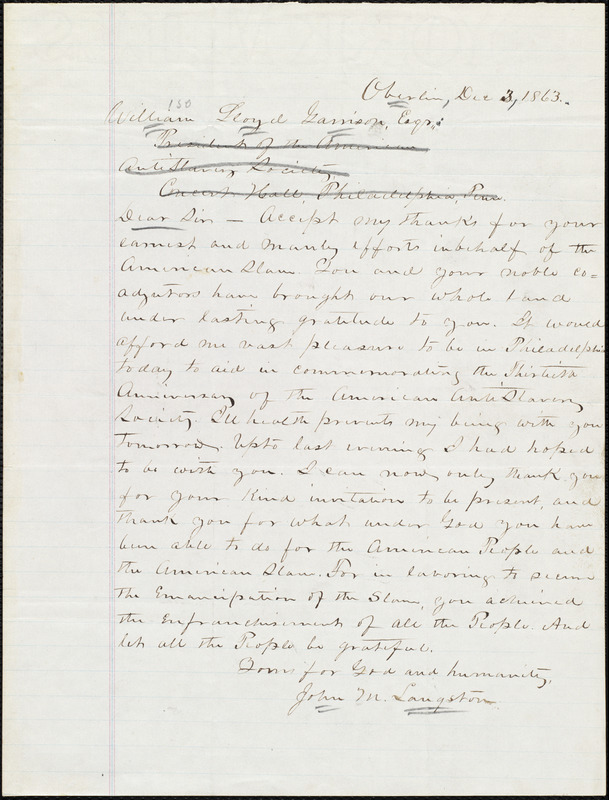 Oberlin, Dec 3, 1863.
150
William Lloyd Garrison, Esqr:
President of the American
AntiSlavery Society,
Concert Hall, Philadelphia, Penn.
Dear Sir — Accept my thanks for your
earnest and manly efforts inbehalf of the
American Slave. You and your noble co=
adjutors have brought our whole land
under lasting gratitude to you. It would
afford me vast pleasure to be in Philadelphia
today to aid in commemorating the Thirtieth
Anniversary of the American AntiSlavery
Society. Ill health prevents my being with you
tomorrow. Upto last evening I had hoped
to be with you. I can now only thank you
for your kind invitation to be present, and
thank you for what under God you have
been able to do for the American People and
the American Slave. For in laboring to secure
the Emancipation of the Slave, you achieved
the Enfranchisement of all the People. And
let all the People be grateful.
Yours for God and humanity,
John M. Langston